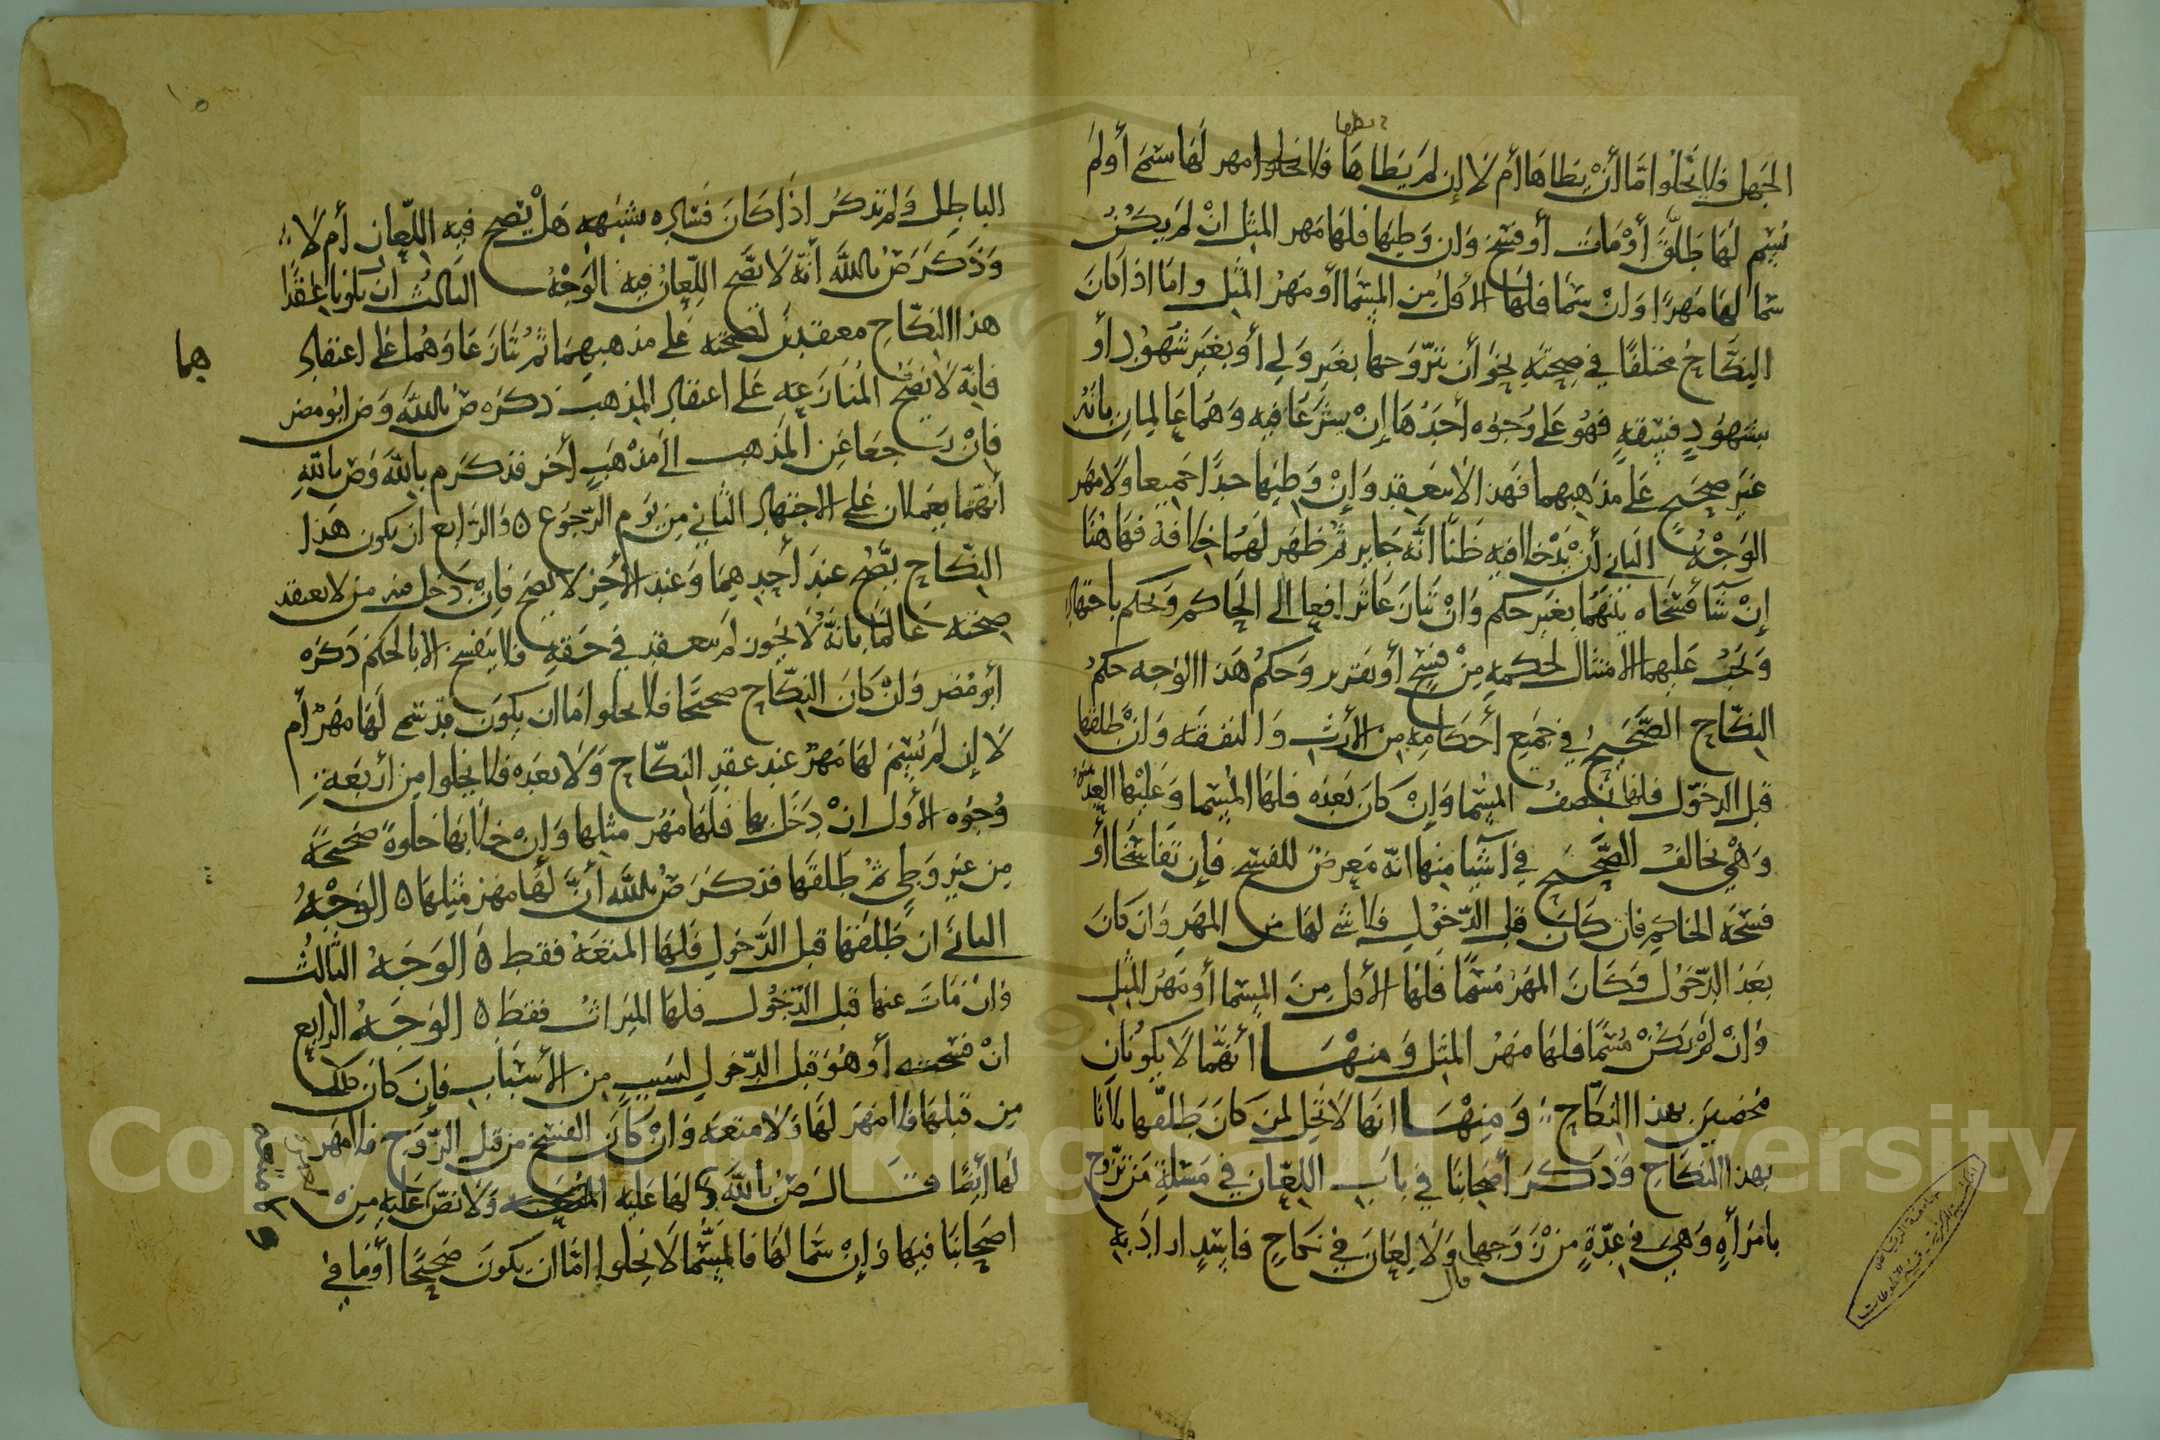 الجهل فلا يخلوا اما أن يطاها أم لا إن لم يطاها فلا مهر لها سمى أو لم
يسم لها طلق أو مات أو فسخ وان وطيها فلها مهر المثل ان لم يكن
سما لها مهرًا وان سما فلها الأقل من المسما أو مهر المثل واما اذا كان
النكاح مختلفا في صحته نحو أن يتزوجها بغير ولي أو بغير شهود أو
بشهود فسقه فهو على وجوه أحدها إن شرعا فيه وهما عالمان بانه
غير صحيح على مذهبهما فهذا لا ينعقد وإن وطيها حدا جميعا ولا مهر
الوجه الثاني أن يدخلا فيه ظنا انه جايز ثم ظهر لهما خلافه فهاهنا
إن شآ فسخاه بينهما بغير حكم وان تنازعا ترافعا إلى الحاكم وحكم باجتهاده
ويجب عليهما الامتثال لحكمه من فسخ أو تقرير وحكم هذا الوجه حكم
النكاح الصحيح في جميع أحكامه من الأرث والنفقه وان طلقها
قبل الدخول فلها نصف المسما وإن كان بعده فلها المسما وعليها العده
وهي تخالف الصحيح في آشيا منها انه معرض للفسخ فإن تفاسخا أو
فسخه الحاكم فان كان قبل الدخول فلا شي لها من المهر وان كان
بعد الدخول فكان المهر مسما فلها الأقل من المسما أو مهر المثل
وان لم يكن مسما فلها مهر المثل ومنها أنهما لا يكونان
محصنين بهذا النكاح ومنها انها لا تحل لمن كان طلقها ثلاثا
بهذا النكاح وذكر أصحابنا في باب اللعان في مسلة من تزوج
بامرأه وهي في عدة من زوجها قال ولا لعان في نكاح فاسد اراد به
الباطل ولم تذكر اذا كان فساده بشبهه هل يصح فيه اللعان أم لا
وذكر ص بالله انه لا يصح اللعان فيه الوجه الثالث ان يكونا عقدا
هذا النكاح معتقدين لصحته على مذهبهما ثم تنازعا وهما على اعتقاد
هما
فانه لا يصح المنازعه على اعتقاد المذهب ذكره ص بالله وض ابو مضر
فإن رجعا عن المذهب الى مذهب أخر فذكر م بالله وص بالله
أنهما يعملان على الاجتهاد الثاني من يوم الرجوع ٥ والرابع ان يكون هذا
النكاح يصح عند أحدهما وعند الأخر لا يصح فإن دخل فيه من لا يعتقد
صحته عالما بانه لا يجوز لم ينعقد في حقه فلا ينفسخ الا بالحكم ذكره
أبو مضر وان كان النكاح صحيحا فلا يخلوا اما ان يكون قد سمى لها مهر أم
لا إن لم يسم لها مهر عند عقد النكاح ولا بعده فلا يخلوا من أربعة
وجوه الأول ان دخل بها فلها مهر مثلها وإن خلا بها خلوة صحيحة
من غير وطي ثم طلقها فذكر ص بالله أن لها مهر مثلها ٥ الوجه
الثاني ان طلقها قبل الدخول فلها المتعه فقط ٥ الوجه الثالث
وان مات عنها قبل الدخول فلها الميراث فقط ٥ الوجه الرابع
ان فسخته أو هو قبل الدخول لسبب من الأسباب فإن كان
من قبلها فلا مهر لها ولا متعه وان كان الفسخ من قبل الزوج فلا مهر
لها أيضًا قال ص بالله لها عليه ولا نص عليه من
اصحابنا فيها وإن سما لها فالمسما لا يخلوا اما ان يكون صحيحا أو فا في